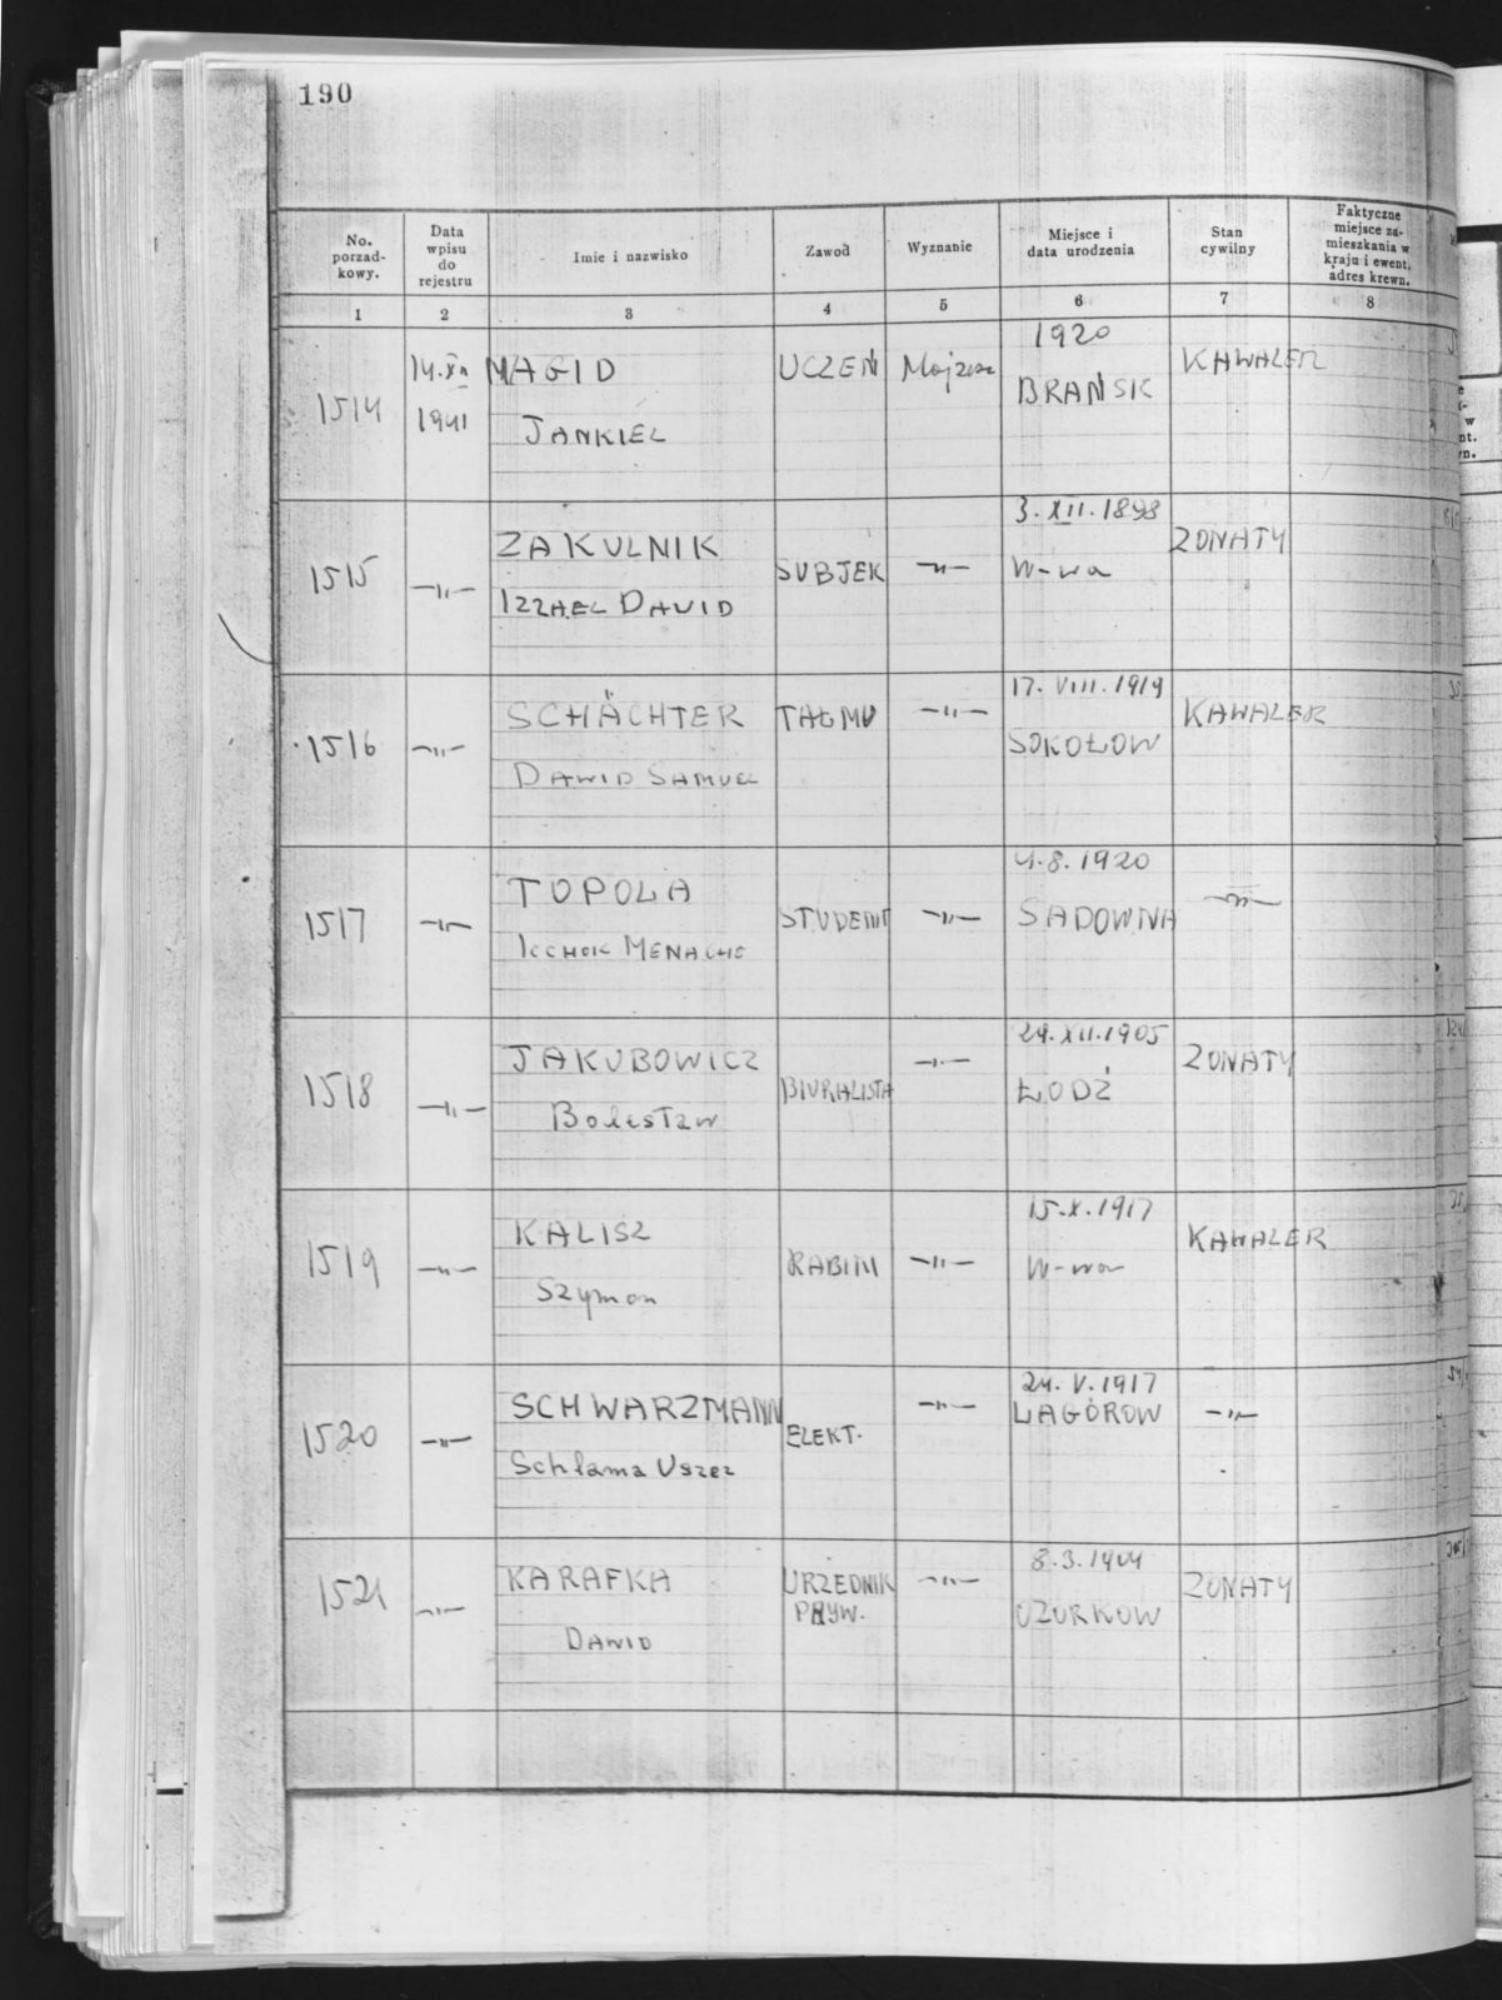 190
No. porzad- kowy.
Data wpisu do rejestru
Imie i nazwisko
Zawod
Wyznanie
Miejsce i data urodzenia
Stan cywilny
Faktyczne miejsce za- mieszkania w kraju i ewent. adres krewn.
1 2 3 4 5 6 7 8
1920
14. MAGID UCZEŃ KAWALER
1514 1941 BRAŃSK
JANKIEL
3. XII. 1898
ZAKULNIK ZONATY
1515 —"— SUBJEK —"— W-wa
IZZAEL DAVID
17. VIII. 1919
SCHÄCHTER TAŁMU —"— KAWALER
1516 —"— SOKOŁOW
DAWID SAMUEL
4.8. 1920
TOPOLA —"—
1517 —"— STUDENT —"— SADOWNA
ICCHOK MENACHE
24. XII. 1905
JAKUBOWICZ —"— ZONATY
1518 —"— BIURALISTA ŁODŹ
Bolesław
15. X. 1917
KALISZ KAWALER
1519 —"— RABIN —"— W-wa
Szymon
24. V. 1917
SCHWARZMANN —"— LAGÓROW —"—
1520 —"— ELEKT.
Schlama Uszer
8.3.1904
KARAFKA URZEDNIK —"— ZONATY
1521 —"— PRYW. OZORKOW
DAWID